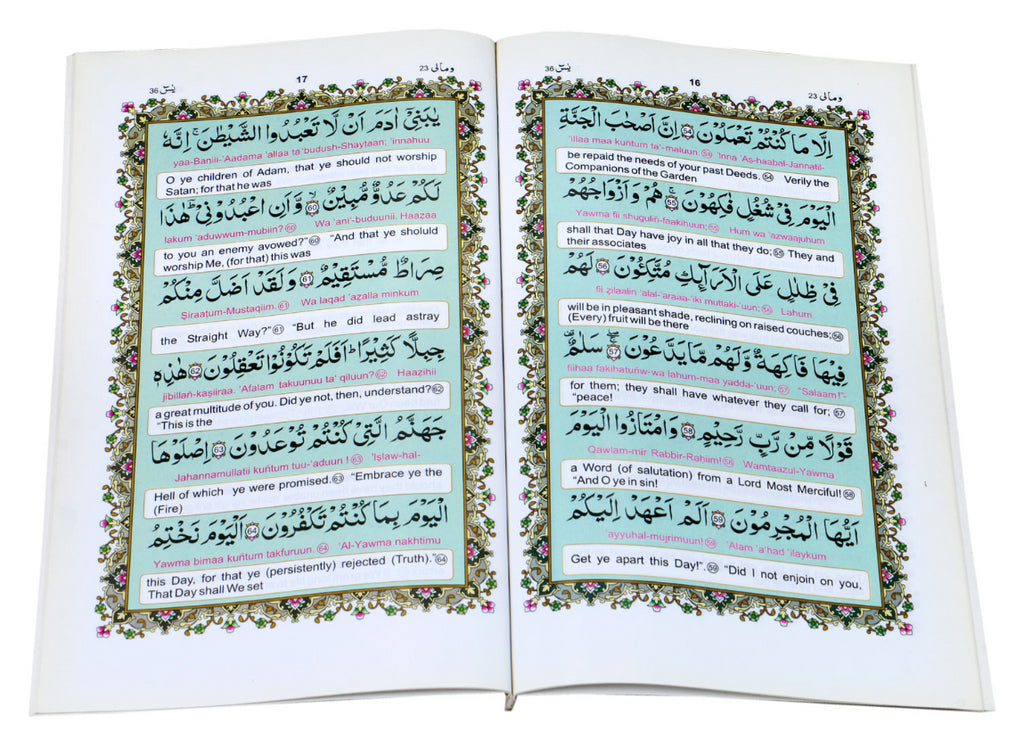 ومالى 23
16
يٰسٓ 36
اِلَّا مَا كُنْتُمْ تَعْمَلُوْنَ 54 اِنَّ اَصْحٰبَ الْجَنَّةِ
'illaa maa kuntum ta'-maluun. 54 'Inna 'As-haabal-Jannatil-
be repaid the needs of your past Deeds. 54 Verily the
Companions of the Garden
الْيَوْمَ فِيْ شُغُلٍ فٰكِهُوْنَ 55 هُمْ وَاَزْوَاجُهُمْ
Yawma fii shuguliñ-faakihuun; 55 Hum wa 'azwaajuhum
shall that Day have joy in all that they do; 55 They and
their associates
فِيْ ظِلٰلٍ عَلَى الْاَرَآئِكِ مُتَّكِـُٔوْنَ 56 لَهُمْ
fii zilaalin 'alal-'araaa-'iki muttaki-'uun; 56 Lahum
will be in pleasant shade, reclining on raised couches; 56
(Every) fruit will be there
فِيْهَا فَاكِهَةٌ وَّلَهُمْ مَّا يَدَّعُوْنَ 57 سَلٰمٌ
fiihaa fakihatuñw-wa lahum-maa yadda-'uun; 57 "Salaam!"-
for them; they shall have whatever they call for; 57
"peace!
قَوْلًا مِّنْ رَّبٍّ رَّحِيْمٍ 58 وَامْتَازُوا الْيَوْمَ
Qawlam-mir Rabbir-Raḥiim! 58 Wamtaazul-Yawma
a Word (of salutation) from a Lord Most Merciful! 58
"And O ye in sin!
اَيُّهَا الْمُجْرِمُوْنَ 59 اَلَمْ اَعْهَدْ اِلَيْكُمْ
'ayyuhal-mujrimuun! 59 'Alam 'a'had 'ilaykum
Get ye apart this Day!". 59 "Did I not enjoin on you,
ومالى 23
17
يٰسٓ 36
يٰبَنِيْٓ اٰدَمَ اَنْ لَّا تَعْبُدُوا الشَّيْطٰنَ ۚ اِنَّهٗ
yaa-Baniii-'Aadama 'allaa ta'budush-Shayṭaan; 'innahuu
O ye children of Adam, that ye should not worship
Satan; for that he was
لَكُمْ عَدُوٌّ مُّبِيْنٌ 60 وَّاَنِ اعْبُدُوْنِيْ ؕ هٰذَا
lakum 'aduwwum-mubiin? 60 Wa 'ani'-buduunii. Haazaa
to you an enemy avowed?" 60 "And that ye sholuld
worship Me, (for that) this was
صِرَاطٌ مُّسْتَقِيْمٌ 61 وَلَقَدْ اَضَلَّ مِنْكُمْ
Ṣiraaṭum-Mustaqiim. 61 Wa laqad 'azalla minkum
the Straight Way?" 61 "But he did lead astray
جِبِلًّا كَثِيْرًا ؕ اَفَلَمْ تَكُوْنُوْا تَعْقِلُوْنَ 62 هٰذِهٖ
jibillañ-kaṣiiraa. 'Afalam takuunuu ta' qiluun? 62 Haazihii
a great multitude of you. Did ye not, then, understand? 62
"This is the
جَهَنَّمُ الَّتِيْ كُنْتُمْ تُوْعَدُوْنَ 63 اِصْلَوْهَا
Jahannamullatii kuñtum tuu-'aduun ! 63 'Iṣlaw-hal-
Hell of which ye were promised. 63 "Embrace ye the
(Fire)
الْيَوْمَ بِمَا كُنْتُمْ تَكْفُرُوْنَ 64 اَلْيَوْمَ نَخْتِمُ
Yawma bimaa kuñtum takfuruun. 64 'Al-Yawma nakhtimu
this Day, for that ye (persistently) rejected (Truth)." 64
That Day shall We set